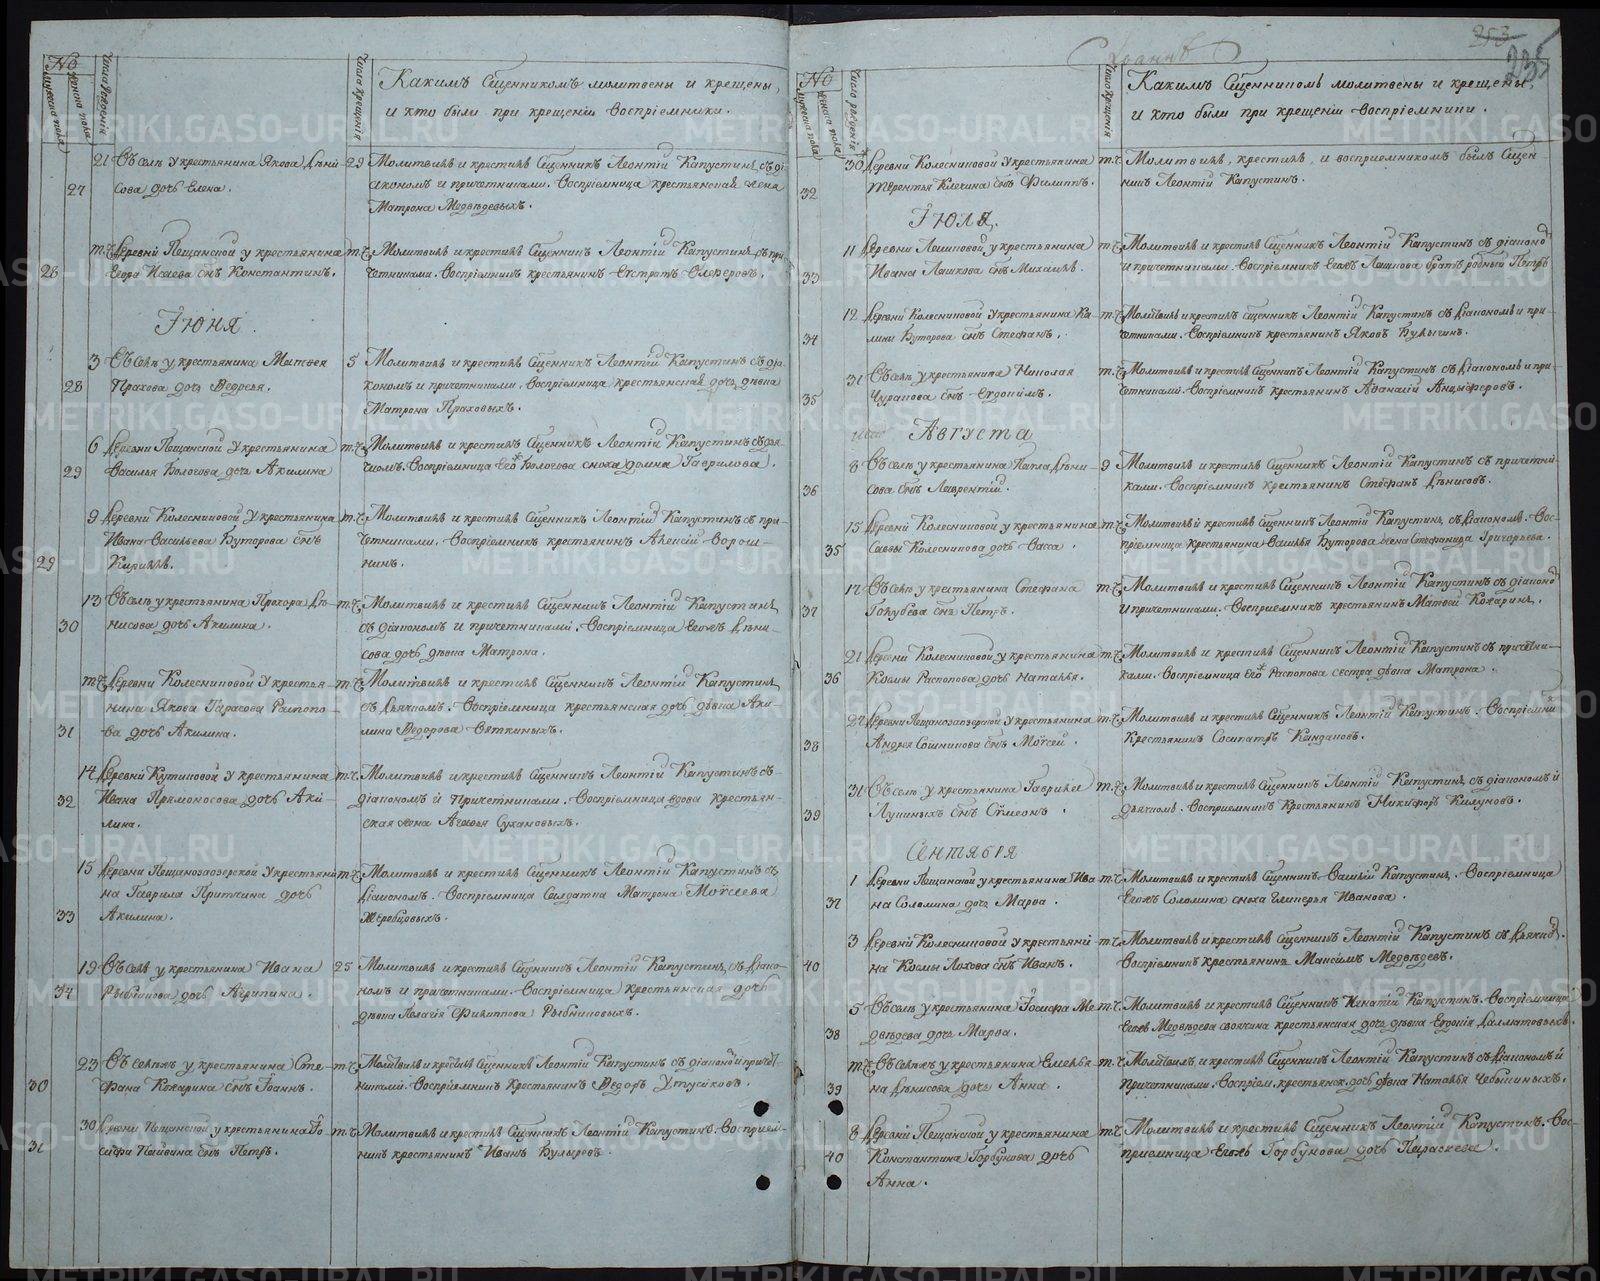 №
мужеска пола
женска пола
число рождения
число крещенія
Какимъ Сщенникомъ молитвены и крещены,
и кто были при крещеніи Воспріемники.
21 Въ селѣ у крестьянина Якова Дѣни-
27 сова дочь Елена.
29 Молитвилъ и крестилъ Сщенникъ Леонтій Капустинъ съ ді-
акономъ и причетниками. Воспріемница крестьянская жена
Матрона Медвѣдевыхъ.
т.ч. Деревни Пещанской у крестьянина
28 сынъ Константинъ.
т.ч. Молитвилъ и крестилъ Сщенникъ Леонтій Капустинъ съ при-
четниками. Воспріемникъ крестьянинъ
Іюня.
3 Въ селѣ у крестьянина Матвея
28 Прахова дочь Ѳедосья.
5 Молитвилъ и крестилъ Сщенникъ Леонтій Капустинъ съ діа-
кономъ и причетниками. Воспріемница крестьянская дочь дѣвка
Матрона Праховыхъ.
6 Деревни Пещанской у крестьянина
29 Василья Бологова дочь Акилина
т.ч. Молитвилъ и крестилъ Сщенникъ Леонтій Капустинъ съ дья-
чкомъ. Воспріемница его Бологова сноха Домна Гаврилова.
9 Деревни Колесниковой у крестьянина
Ивана Васильева Буторова сынъ
29 Кириллъ.
т.ч. Молитвилъ и крестилъ Сщенникъ Леонтій Капустинъ съ при-
четниками. Воспріемникъ крестьянинъ Алексій Ворош-
нинъ.
13 Въ селѣ у крестьянина Прохора Дѣ-
30 нисова дочь Акилина.
т.ч. Молитвилъ и крестилъ Сщенникъ Леонтій Капустинъ
съ діакономъ и причетниками. Воспріемница егожъ Дѣни-
сова дочь дѣвка Матрона.
т.ч. Деревни Колесниковой у крестья-
нина Якова Тарасова Распопо-
31 ва дочь Акилина.
т.ч. Молитвилъ и крестилъ Сщенникъ Леонтій Капустинъ
съ дьячкомъ. Воспріемница крестьянская дочь дѣвка Аки-
лина Ѳедорова Вяткиныхъ.
14 Деревни Кутиковой у крестьянина
32 Ивана Прямоносова дочь Аки-
лина.
т.ч. Молитвилъ и крестилъ Сщенникъ Леонтій Капустинъ съ
діакономъ и причетниками. Воспріемница вдова крестьян-
ская жена Агафья Сухановыхъ.
15 Деревни Пещанозаозерской у крестьяни-
на Гаврила Притчина дочь
33 Акилина.
т.ч. Молитвилъ и крестилъ Сщенникъ Леонтій Капустинъ съ
Діакономъ. Воспріемница Солдатка Матрона Моѵсеева
Жеребцовыхъ.
19 Въ селѣ у крестьянина Ивана
34 Рыбникова дочь Агрипина.
25 Молитвилъ и крестилъ Сщенникъ Леонтій Капустинъ съ Діако-
номъ и причетниками. Воспріемница крестьянская дочь
дѣвка Пелагія Филиппова Рыбниковыхъ.
23 Въ селѣжъ у крестьянина Сте-
30 фана Кожарина сынъ Іоаннъ.
т.ч. Молитвилъ и крестилъ Сщенникъ Леонтій Капустинъ съ діакономъ и причет-
никами. Воспріемникъ Крестьянинъ Ѳедоръ Утусиковъ.
30 Деревни Пещанской у крестьянина Іо-
31 сифа Пайвина сынъ Петръ.
т.ч. Молитвилъ и крестилъ Сщенникъ Леонтій Капустинъ. Воспріем-
никъ крестьянинъ Иванъ Булыревъ.
253
235
№
мужеска пола
женска пола
число рожденія
число крещенія
Какимъ Сщенникомъ молитвены и крещены,
и кто были при крещеніи Воспріемники.
30 Деревни Колесниковой у крестьянина
32 Терентья Клевина сынъ Филиппъ.
т.ч. Молитвилъ, крестилъ, и восприемникомъ былъ Сщен-
никъ Леонтій Капустинъ.
Іюля.
11 Деревни Лешковой у крестьянина
33 Ивана Лешкова сынъ Михаилъ.
т.ч. Молитвилъ и крестилъ Сщенникъ Леонтій Капустинъ съ діакономъ
и причетниками. Воспріемникъ егожъ Лешкова братъ родный Петръ
12 Деревни Колесниковой у крестьянина Ка-
34 лини Буторова сынъ Стефанъ.
т.ч. Молитвилъ и крестилъ сщенникъ Леонтій Капустинъ съ Діакономъ и при-
четниками. Воспріемникъ крестьянинъ Яковъ
31 Въ селѣ у крестьянина Николая
35 Чуракова сынъ Евдокимъ.
т.ч. Молитвилъ и крестилъ Сщенникъ Леонтій Капустинъ съ Діакономъ и при-
четниками. Воспріемникъ крестьянинъ Аѳанасій Анцыферовъ.
Августа
8 Въ селѣ у крестьянина Павла Дѣни-
36 сова сынъ Лаврентій.
9 Молитвилъ и крестилъ Сщенникъ Леонтій Капустинъ съ причетни-
ками. Воспріемникъ крестьянинъ Стефанъ Дѣнисовъ.
15 Деревни Колесниковой у крестьянина
35 Саввы Колесникова дочь Васса.
т.ч. Молитвилъ и крестилъ Сщенникъ Леонтій Капустинъ съ Діакономъ. Вос-
пріемница крестьянина Василья Буторова жена Стефанида Григорьева.
17 Въ селѣ у крестьянина Стефана
37 Голубева сынъ Петръ.
т.ч. Молитвилъ и крестилъ Сщенникъ Леонтій Капустинъ съ діакономъ
и причетниками. Восприемникъ крестьянинъ Матвей Кожаринъ.
21 Деревни Колесниковой у крестьянина
36 Космы Распопова дочь Наталья.
т.ч. Молитвилъ и крестилъ Сщенникъ Леонтій Капустинъ съ причетни-
ками. Воспріемница его Распопова сестра дѣвка Матрона.
27 Деревни Пещанозаозерской у крестьянина
38 Андрея Сошникова сынъ Моѵсей.
т.ч. Молитвилъ и крестилъ Сщенникъ Леонтій Капустинъ. Воспріемникъ
Крестьянинъ Сосипатръ Кандаковъ.
31 Въ селѣ у крестьянина Гавриила
39 Лушиныхъ сынъ Сѵмеонъ.
т.ч. Молитвилъ и крестилъ Сщенникъ Леонтій Капустинъ съ діакономъ и
дьячкомъ. Воспріемникъ Крестьянинъ Никифоръ Килуновъ.
Сентября
1 Деревни Пещанской у крестьянина Ива-
37 на Соломина дочь Марѳа.
т.ч. Молитвилъ и крестилъ Сщенникъ Василій Капустинъ. Воспріемница
Егожъ Соломина сноха Гликерья Иванова.
3 Деревни Колесниковой у крестьяни-
40 на Космы Лохова сынъ Иванъ.
т.ч. Молитвилъ и крестилъ Сщенникъ Леонтій Капустинъ съ Дьякономъ.
Воспріемникъ крестьянинъ Максимъ Медвѣдевъ.
5 Въ селѣ у крестьянина Іосифа Ме-
38 двѣдева дочь Марѳа.
т.ч. Молитвилъ и крестилъ Сщенникъ Игнатій Капустинъ. Воспріемница
Егожъ Медвѣдева своячина крестьянская дочь дѣвка Евдокія Далматовыхъ.
т.ч. Въ селѣжъ у крестьянина Емелья-
39 на Дѣнисова дочь Анна.
т.ч. Молитвилъ и крестилъ Сщенникъ Леонтій Капустинъ съ Діакономъ и
причетниками. Воспріем. крестьянск. дочь дѣвка Наталья Чебыкиныхъ.
8 Деревни Пещанской у крестьянина
40 Константина Горбунова дочь
Анна.
т.ч. Молитвилъ и крестилъ Сщенникъ Леонтій Капустинъ. Вос-
приемница Егожъ Горбунова дочь Параскева.